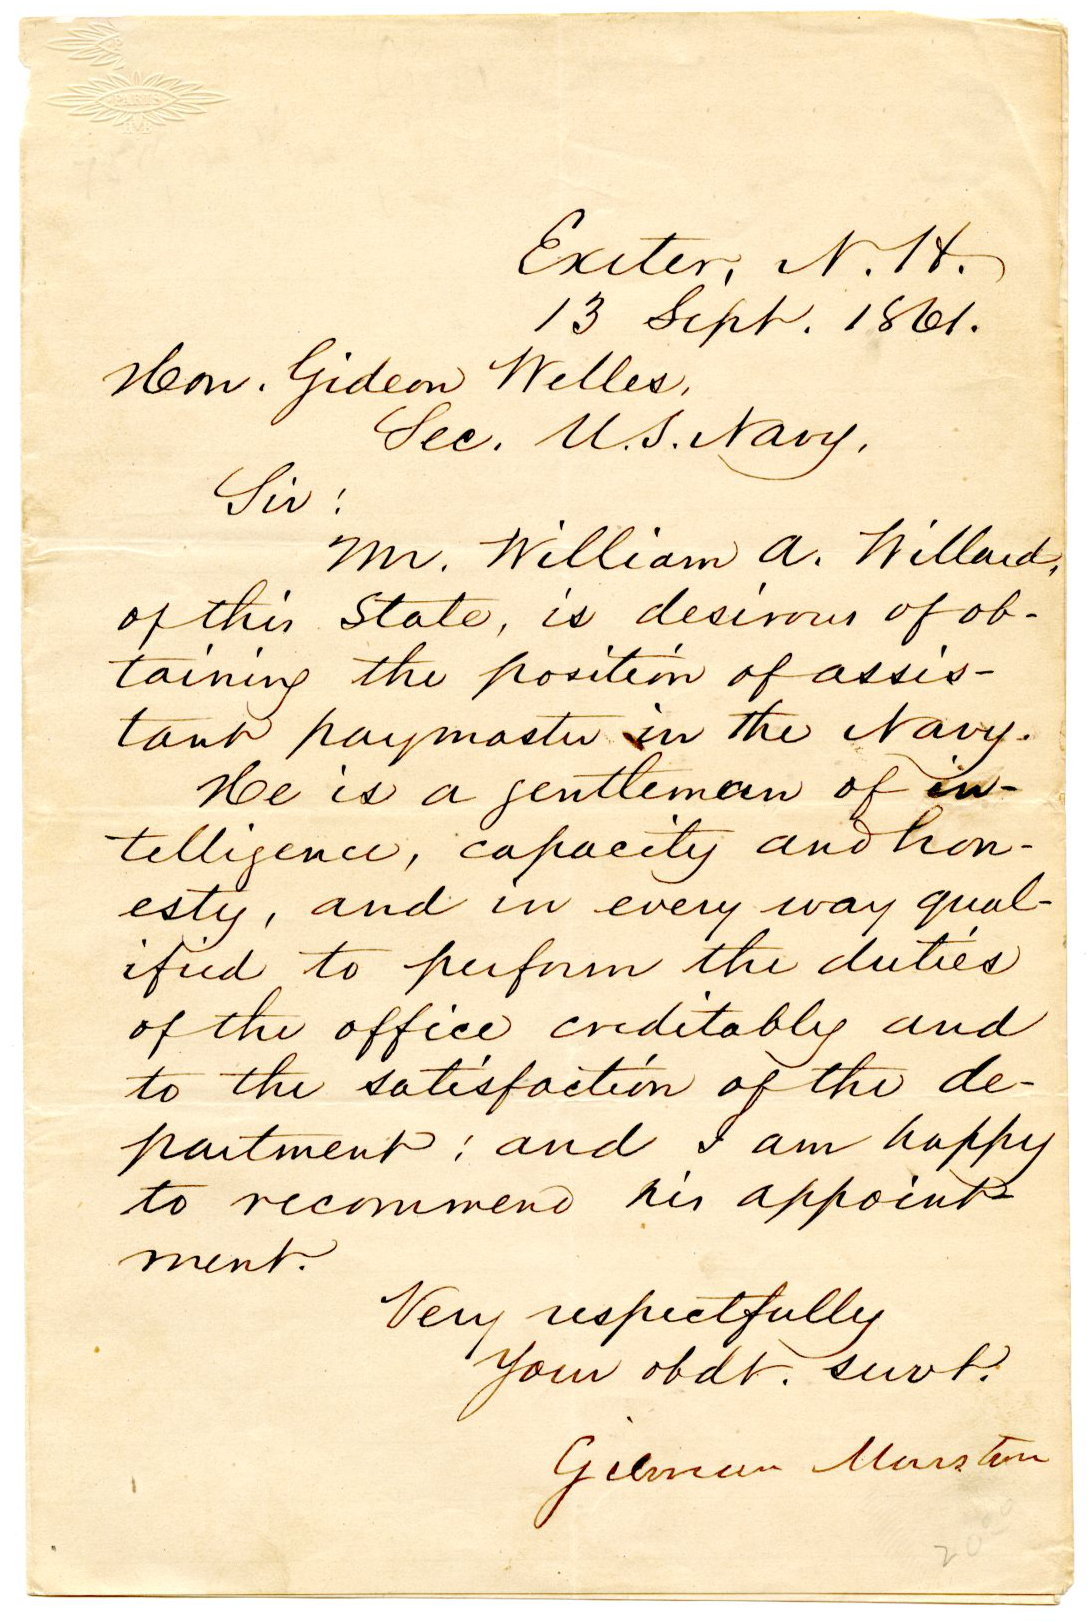 PARIS
Exeter, N. H.
13 Sept. 1861.
Hon. Gideon Welles,
Sec. U. S. Navy,
Sir:
Mr. William A. Willard,
of this State, is desirous of ob-
taining the position of assis-
tant paymaster in the Navy.
He is a gentleman of in-
telligence, capacity and hon-
esty, and in every way qual-
ified to perform the duties
of the office creditably and
to the satisfaction of the de-
partment; and I am happy
to recommend his appoint-
ment.
Very respectfully
Your obdt. servt.
Gilman Marston